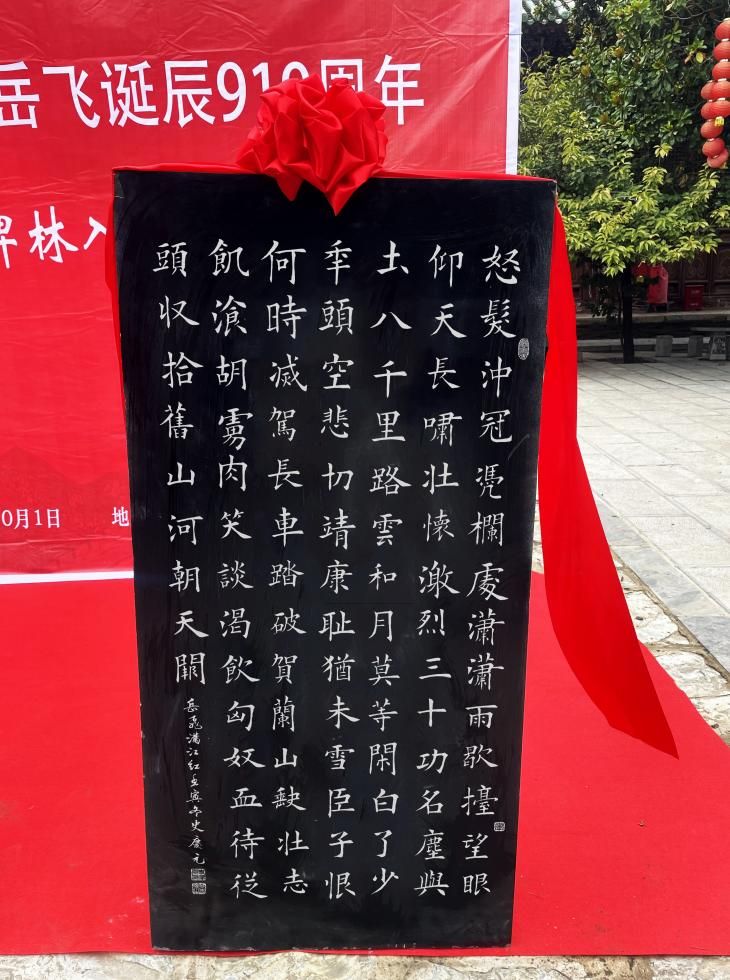 岳飞诞辰91周年
碑林入
0月1日 地
怒髮沖冠凴欄處瀟瀟雨歇擡望眼
仰天長嘯壯懷激烈三十功名塵與
土八千里路雲和月莫等閑白了少
秊頭空悲切靖康耻猶未雪臣子恨
何時滅駕長車踏破賀蘭山缺壯志
飢湌胡虜肉笑談渴飲匈奴血待從
頭收拾舊山河朝天闕
岳飛滿江紅壬寅冬史慶元